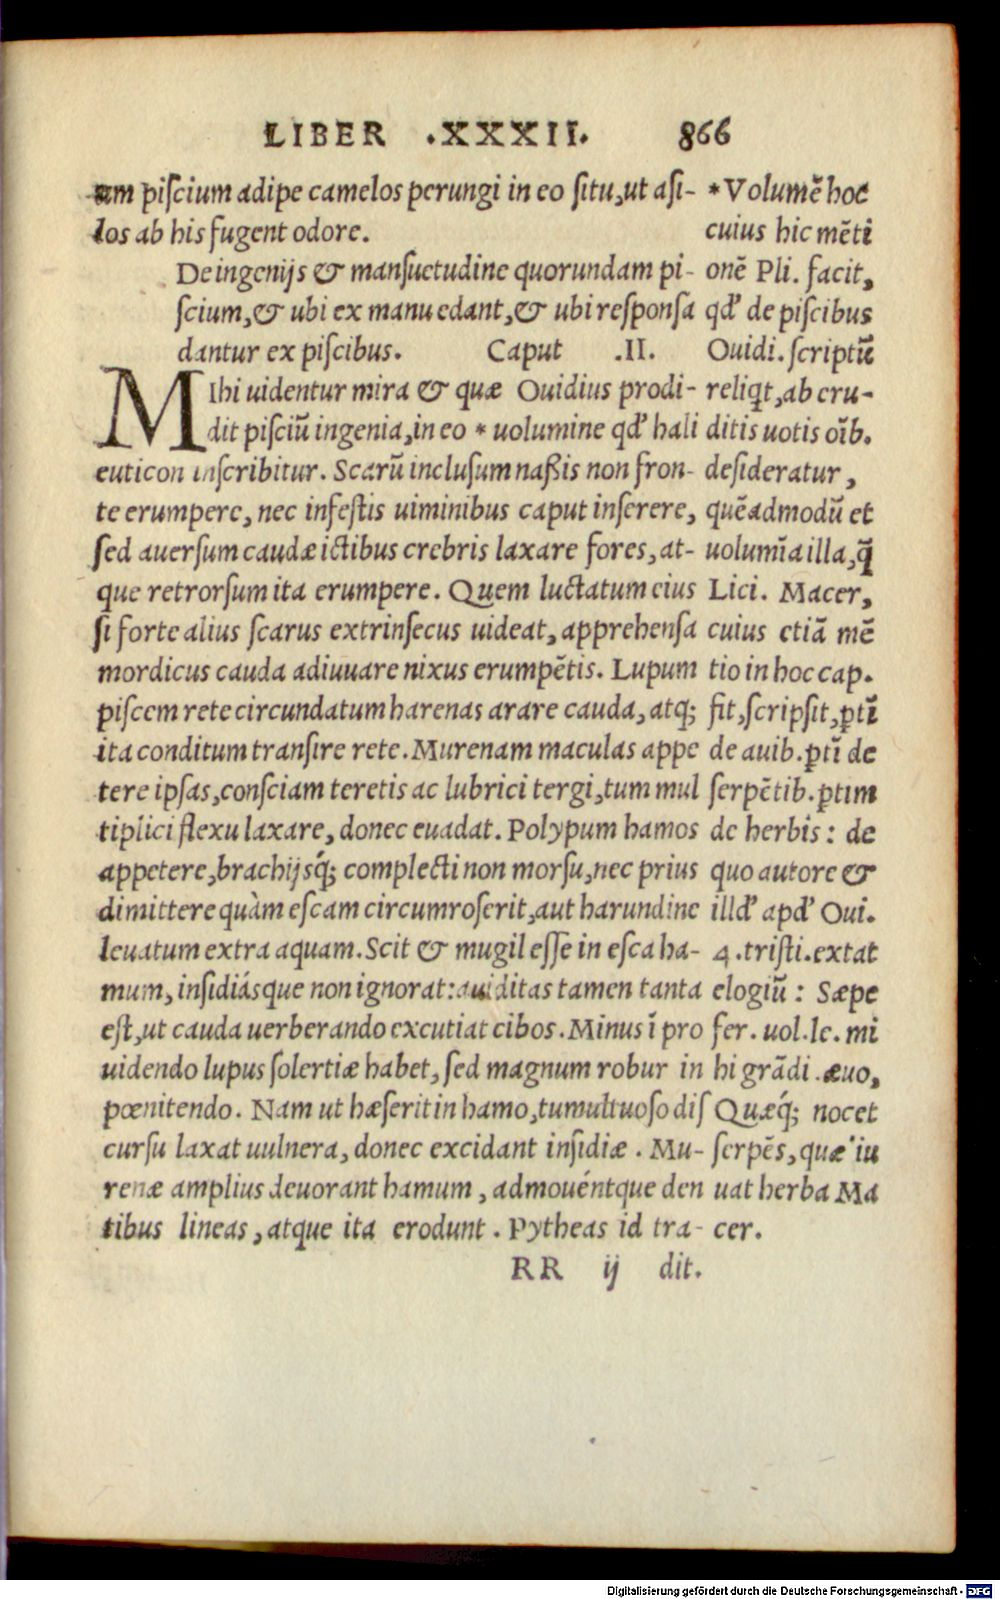 LIBER .XXXII. 866
um piſcium adipe camelos perungi in eo ſitu, ut aſi-
los ab his fugent odore.
De ingenijs & manſuetudine quorundam pi-
ſcium, & ubi ex manu edant, & ubi reſponſa
dantur ex piſcibus. Caput .II.
MIhi uidentur mira & quæ Ouidius prodi-
dit piſciũ ingenia, in eo * uolumine qđ hali
euticon inſcribitur. Scarũ incluſum naßis non fron-
te erumpere, nec infeſtis uiminibus caput inſerere,
ſed auerſum caudæ ictibus crebris laxare fores, at-
que retrorſum ita erumpere. Quem luctatum eius
ſi forte alius ſcarus extrinſecus uideat, apprehenſa
mordicus cauda adiuuare nixus erumpẽtis. Lupum
piſcem rete circundatum harenas arare cauda, atq;
ita conditum tranſire rete. Murenam maculas appe
tere ipſas, conſciam teretis ac lubrici tergi, tum mul
tiplici flexu laxare, donec euadat. Polypum hamos
appetere, brachijsq́; complecti non morſu, nec prius
dimittere quàm eſcam circumroſerit, aut harundine
leuatum extra aquam. Scit & mugil eſſe in eſca ha-
mum, inſidiásque non ignorat: auiditas tamen tanta
eſt, ut cauda uerberando excutiat cibos. Minus ĩ pro
uidendo lupus ſolertiæ habet, ſed magnum robur in
pœnitendo. Nam ut hæſerit in hamo, tumultuoſo diſ
curſu laxat uulnera, donec excidant inſidiæ. Mu-
renæ amplius deuorant hamum, admouéntque den
tibus lineas, atque ita erodunt. Pytheas id tra-
RR ij dit.
* Volumẽ hoc
cuius hic mẽti
onẽ Pli. facit,
qđ de piſcibus
Ouidi. ſcriptũ
reliqt, ab cru-
ditis uotis oĩb.
deſideratur,
quẽadmodũ et
uolumĩa illa, q̃
Lici. Macer,
cuius etiã mẽ
tio in hoc cap.
fit, ſcripſit, ꝑtĩ
de auib. ꝑtĩ de
ſerpẽtib. ꝑtim
de herbis: de
quo autore &
illđ apđ Oui.
4. triſti. extat
elogiũ: Sæpe
fer. uol. le. mi
hi grãdi .æuo,
Quæq́; nocet
ſerpẽs, quæ iu
uat herba Ma
cer.
Digitalisierung gefördert durch die Deutsche Forschungsgemeinschaft - DFG